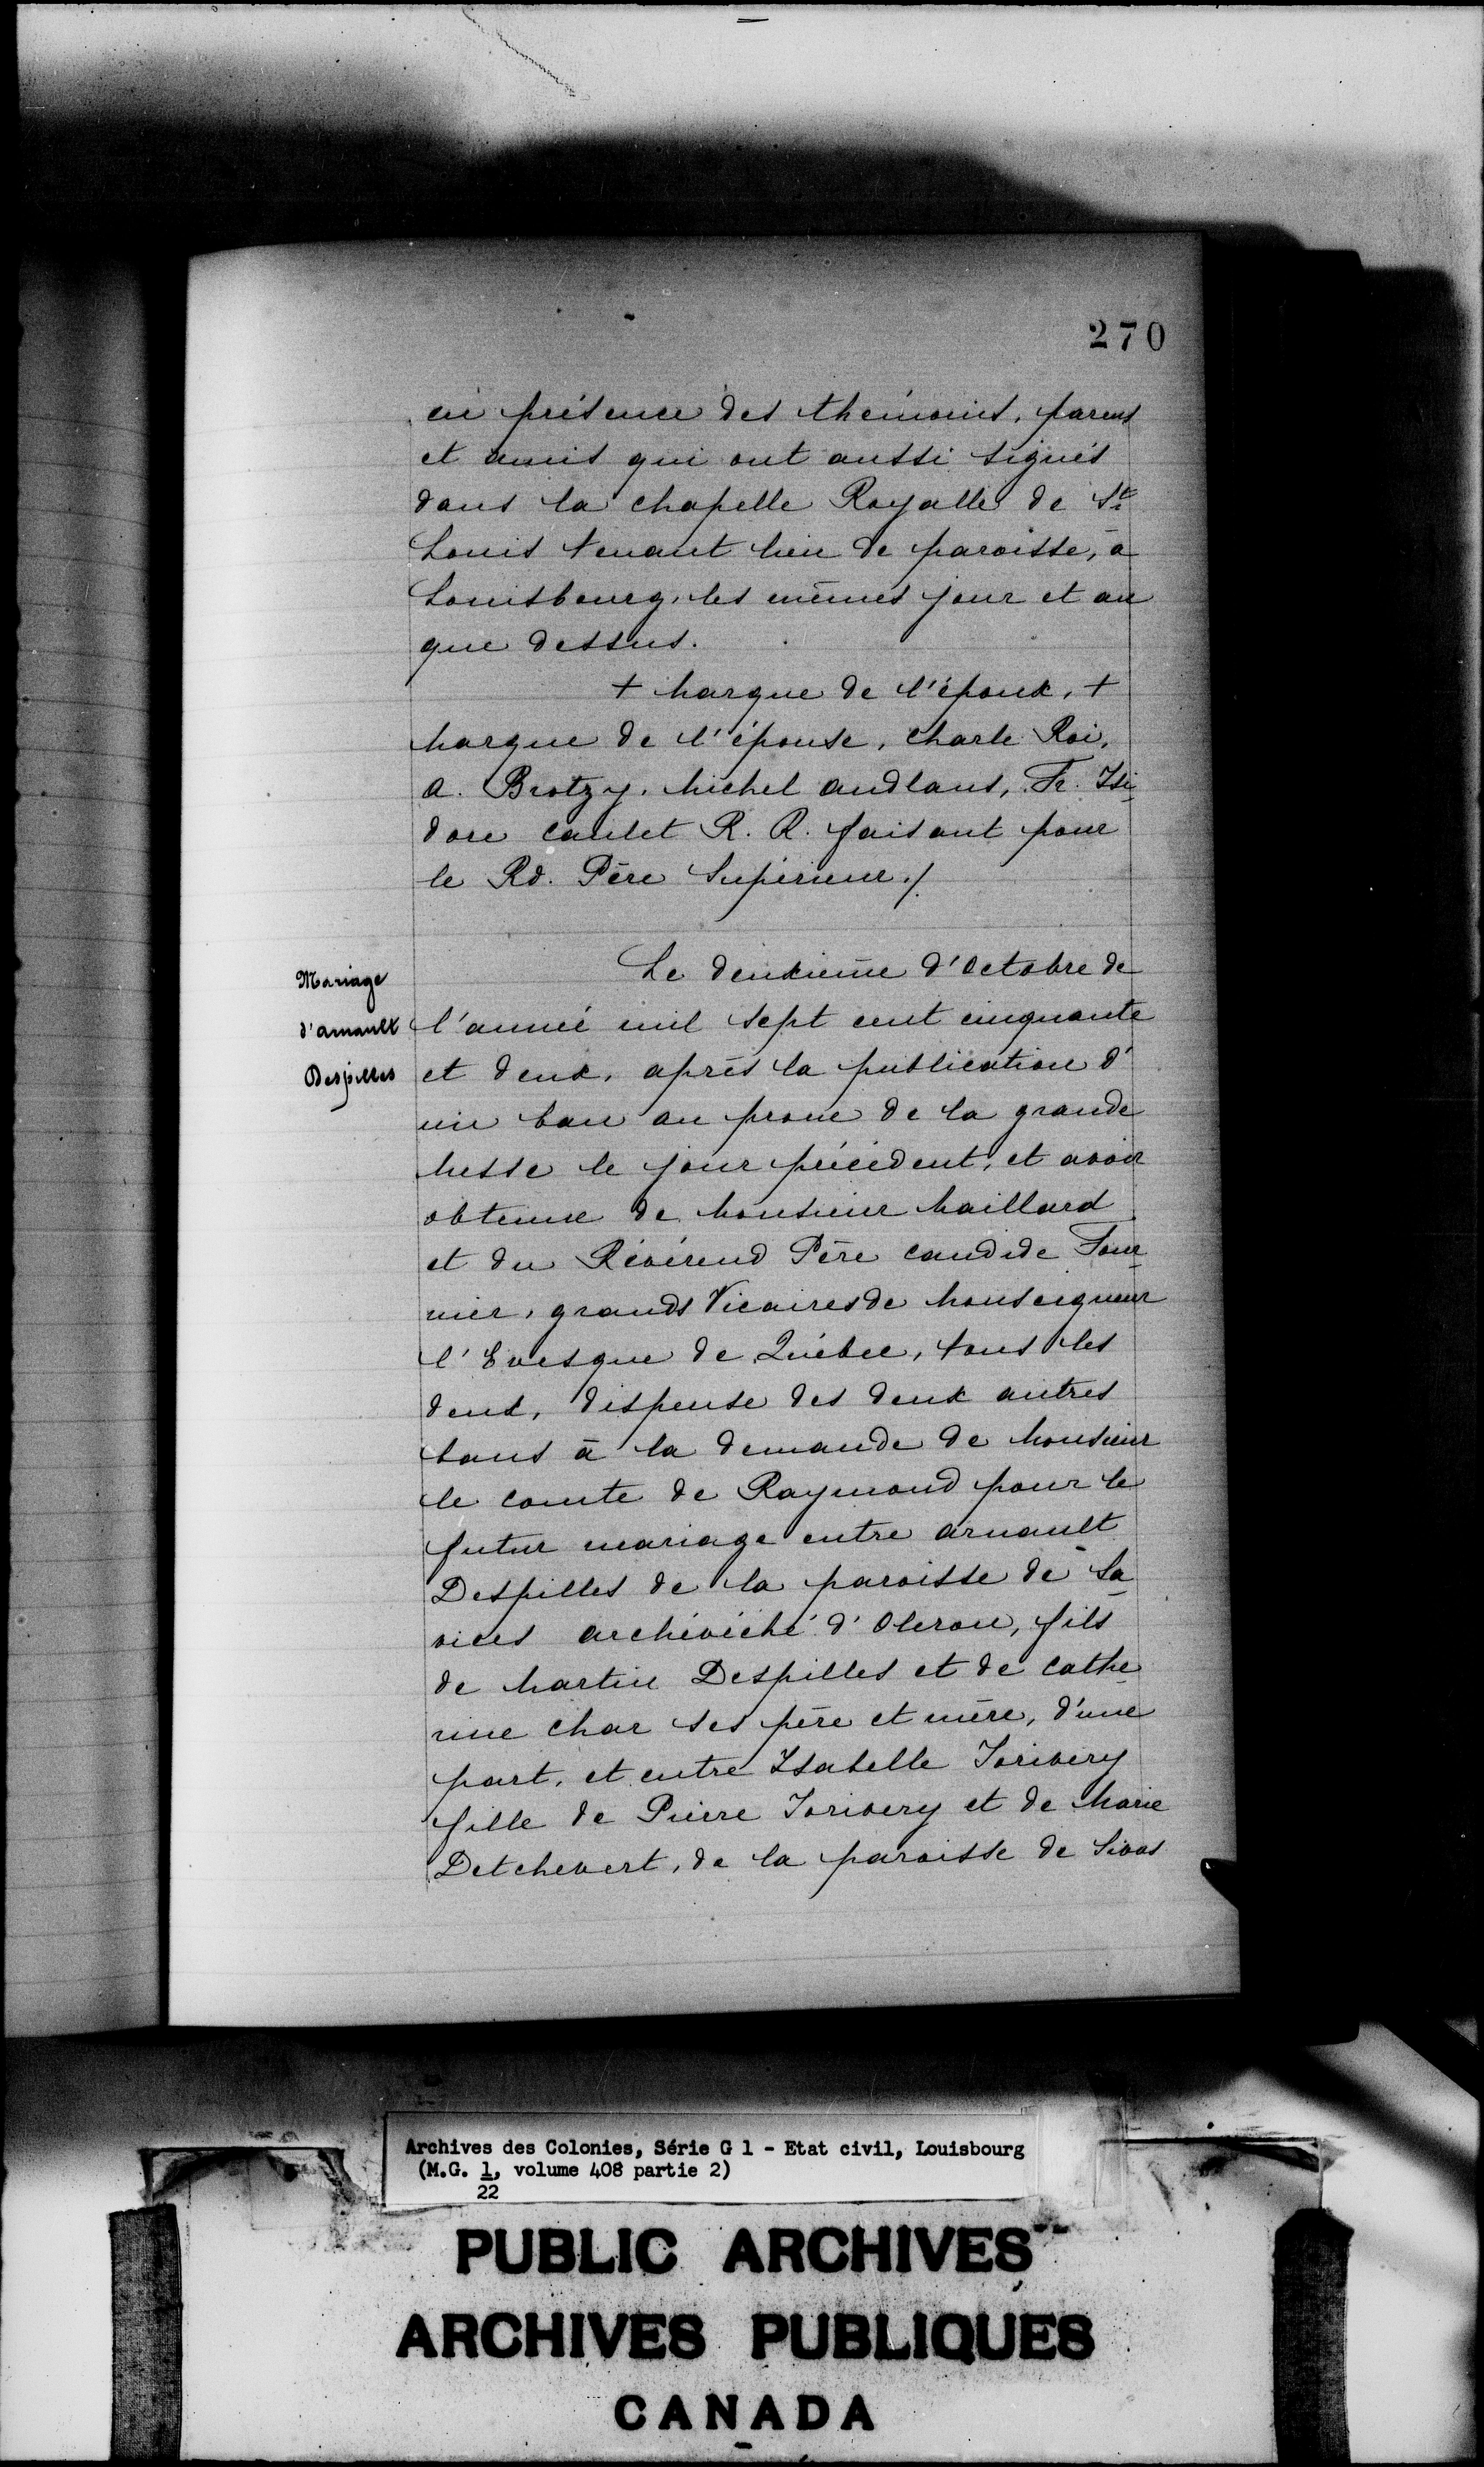 270
en présence des thémoins, parens
et amis qui ont aussi signés
dans la chapelle Royalle de St
Louis tenant lieu de paroisse, à
Louisbourg, les mêmes jour et an
que dessus.
+ Marque de l'époux, +
Marque de l'épouse, Charle Roi,
A. Brotzy, Michel Audlaus, Fr. Isi-
dore Caulet R. R. faisant pour
le Rd. Père Supérieur./
Mariage
d'arnault
Despilles
Le deuxième d'Octobre de
l'année mil sept cent cinquante
et deux, après la publication d'
un ban au prone de la grande
Messe le jour précédent, et avoir
obtenue de Monsieur Maillard
et du Révérend Père Candide Four-
nier, grands Vicaires de Monseigneur
l'Evesque de Québec, tous les
deux, dispense des deux autres
bans à la demande de Monsieur
le comte de Raymond pour le
futur mariage entre Arnault
Despilles de la paroisse de La-
vices archévéché d'Oleron, fils
de Martin Despilles et de Cathe-
rine Char ses père et mère, d'une
part, et entre Isabelle Jorivery
fille de Pierre Jorivery et de Marie
Detchevert, de la paroisse de Sivos
Archives des Colonies, Série G 1 - Etat civil, Louisbourg
(M.G. 1, volume 408 partie 2)
22
PUBLIC ARCHIVES
ARCHIVES PUBLIQUES
CANADA